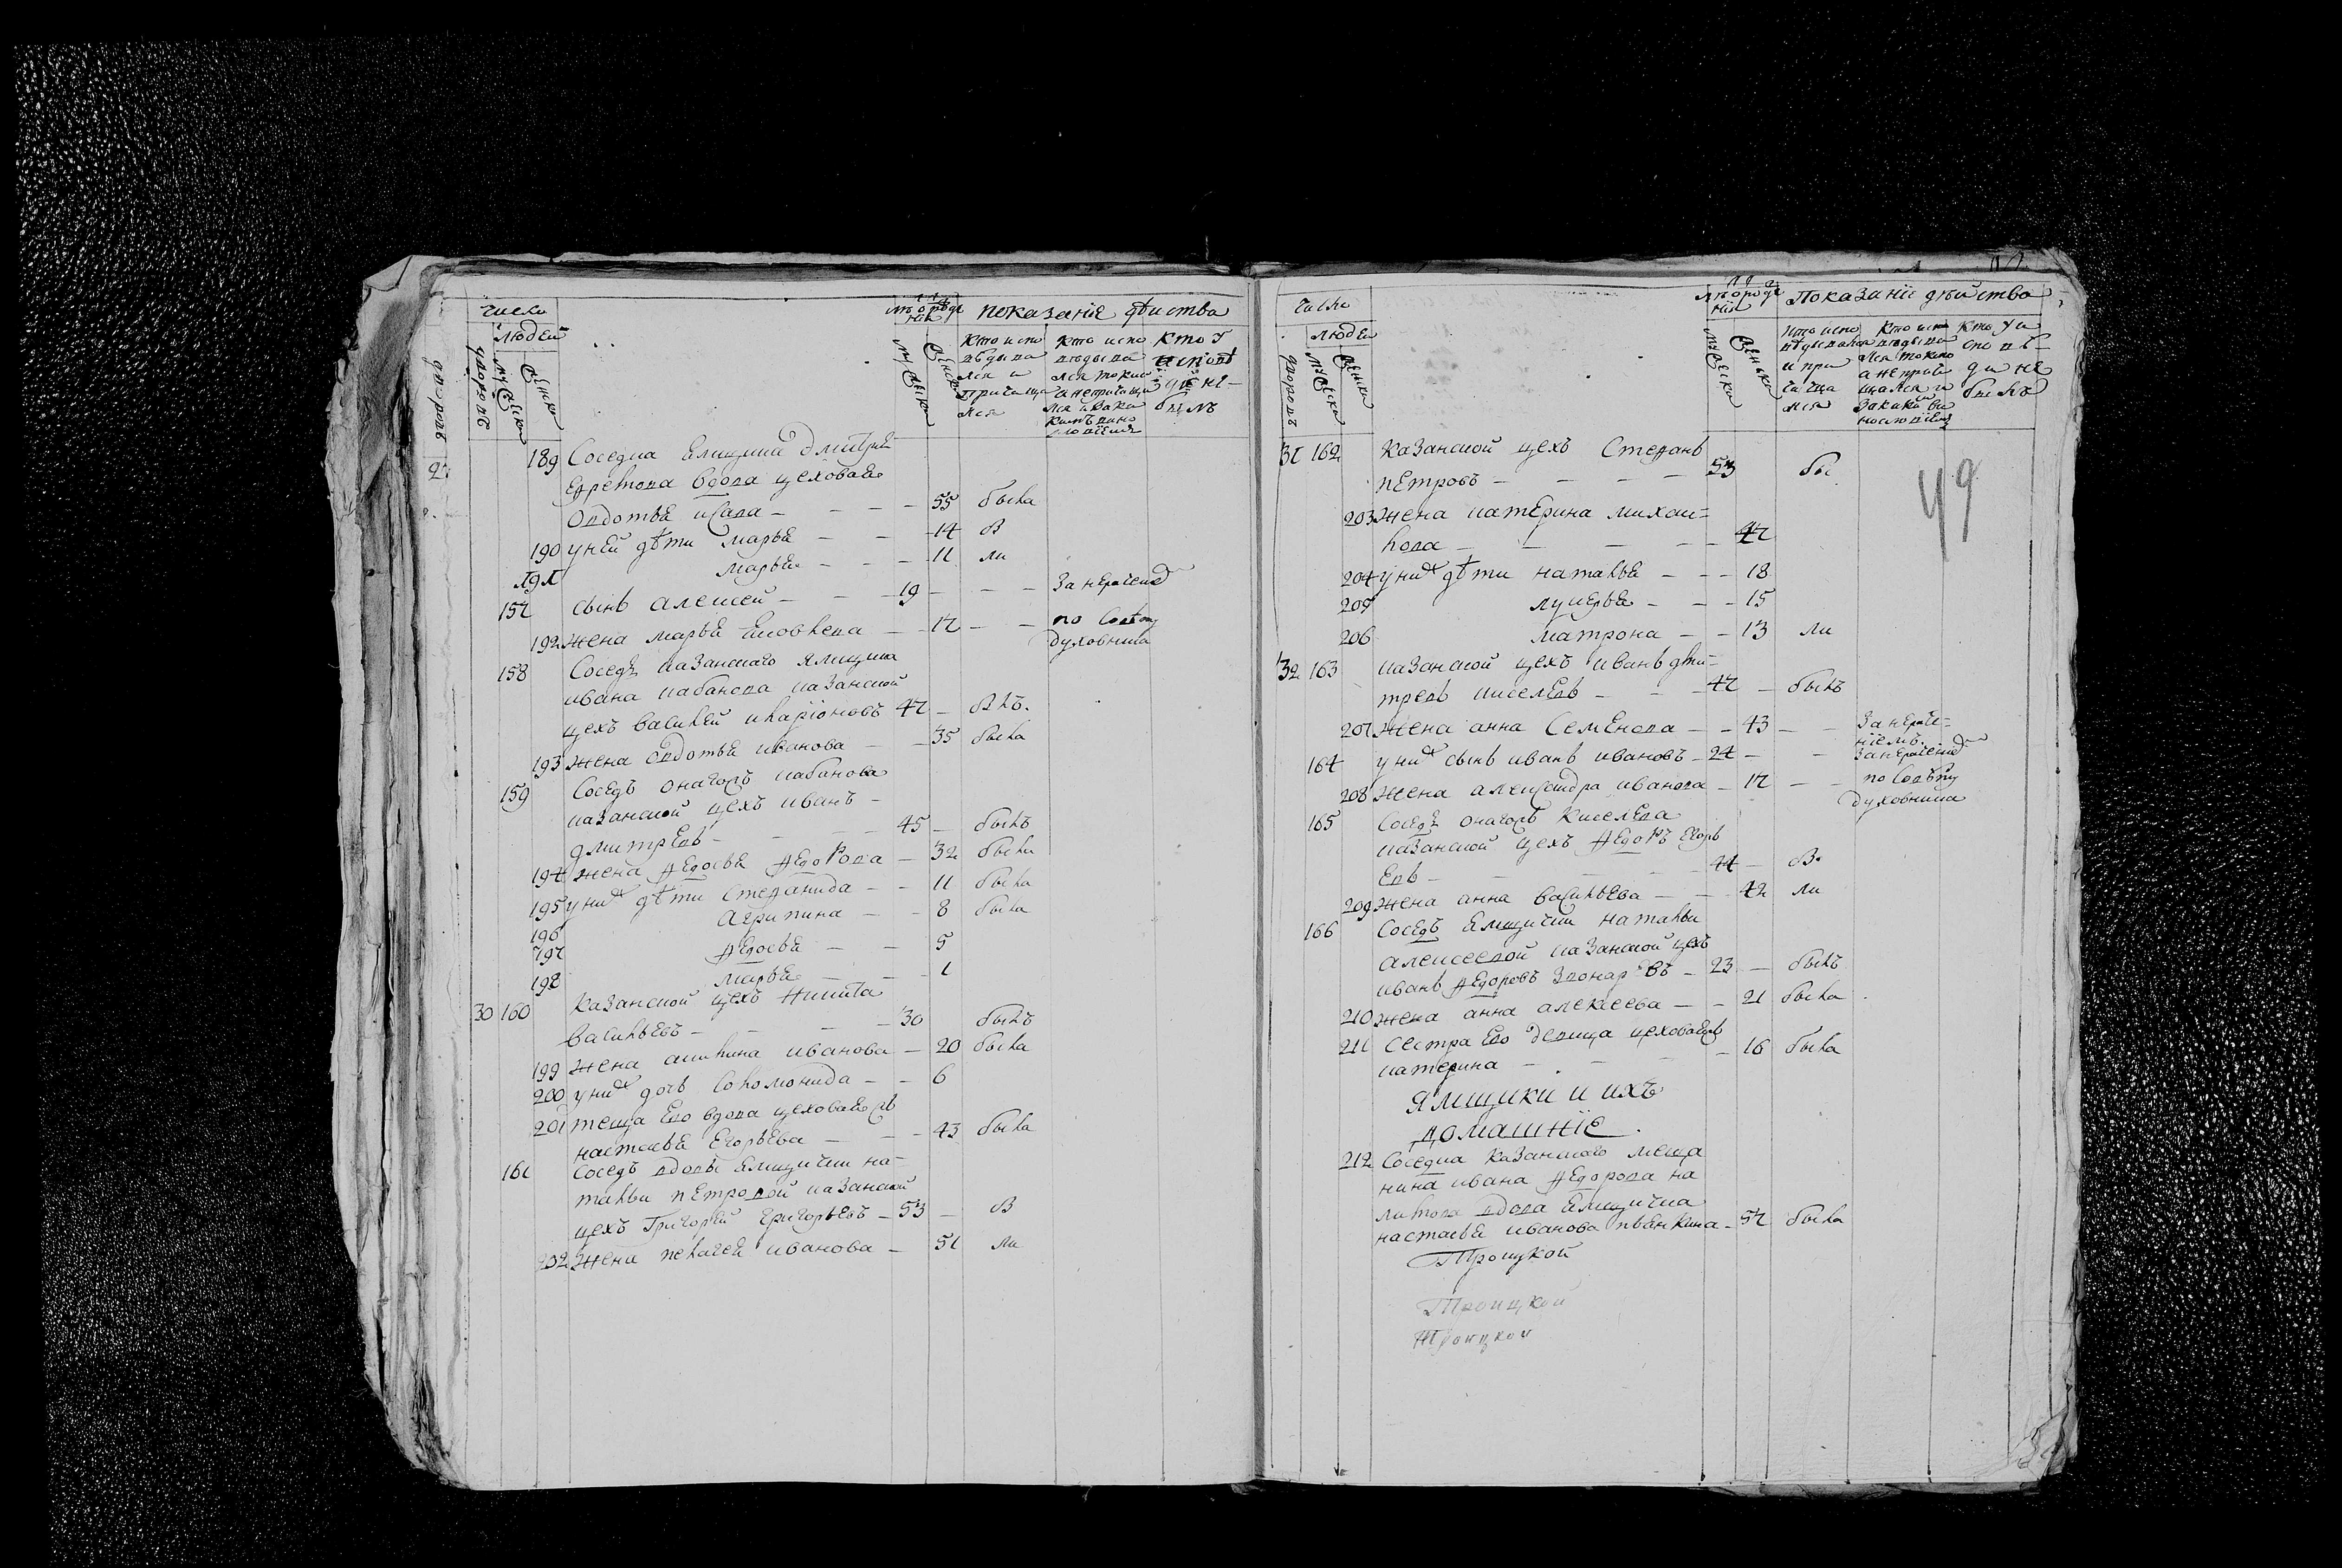 число
людей
лѣ порожде
нія
показаніе дѣиства
дворовъ
мужеска
женска
мужеска
женска
кто испо
вѣдыва
лся и
причаща
лся
кто испо
вѣдыва
лся токмо
а непричаща
лся и зака
кимъ вино
словіемъ
кто у
исповѣ
ди не
былъ
189 Соседка Ямщика дмитрея
Ефремова вдова цеховая
овдотья исаева — 55 была
190 у ней дѣти марья — 14 В
191 марья — 11 ли
157 сынъ алексей — 19 — За нерачениемъ
192 жена марья яковлева — 17 — по Совѣту
духовника
158 Соседъ казанскаго ямщика
ивана кабанова казанской
цехъ василей иларіоновъ 47 — Влъ.
193 жена овдотья иванова — 35 была
159 Соседъ оного кабанова
казанской цехъ иванъ —
дмитревъ — 45 — былъ
194 жена федосья федорова — 32 была
195 у них дѣти степанида — 11 была
196 агрипина — 8 была
197 федосья — 5
198 марья — 1
30 160 казанской цехъ никита
васильевъ — 30 былъ
199 жена акилина иванова — 20 была
200 у них дочь соломонида — 6
201 теща Ево вдова цеховая
настасья Егорьева — 43 была
161 Соседъ вдовы ямщички на
тальи петровой казанской
цехъ Григорей григорьевъ — 53 — В
202 жена пелагея иванова — 51 ли
число
людей
лѣ порожде
нія
Показаніе дѣйства
дворовъ
мужеска
женска
мужеска
женска
кто испо
вѣдывался
и при
чаща
лся
кто испо
вѣдыва
лся токмо
а неприча
щался и
закаким ви
нословіем
кто у и
сповѣ
ди не
былъ
31 162 казанской цехъ Степанъ
петровъ — 53 бы
49
203 жена катерина михаи=
лова — 47
204 у них дѣти наталья — 18
205 лукерья — 15
206 матрона — 13 ли
32 163 казанской цехъ иванъ дми=
тревъ киселевъ — 47 — былъ
207 жена анна Семенова — 43 — За нераче=
ніемъ.
164 у них сынъ иванъ ивановъ — 24 — За нерачениемъ
208 жена александра иванова — 17 — по Совѣту
духовника
165 Соседъ оного киселева
казанской цехъ федоръ Егорь
Евъ — 44 — В.
209 жена анна васильева — 42 ли
166 Соседъ ямщички натальи
алексеевой казанской цехъ
иванъ федоровъ звонаревъ — 23 — былъ
210 жена анна алексеева — 21 была
211 сестра Ево девица цеховая
катерина — 16 была
Ямщики и ихъ
домашніе.
212 Соседка казанскаго меща
нина ивана федорова на
литова вдова ямщичка
настасья иванова пьянкина — 57 была
Троицкой
Троицкой
Троицкой